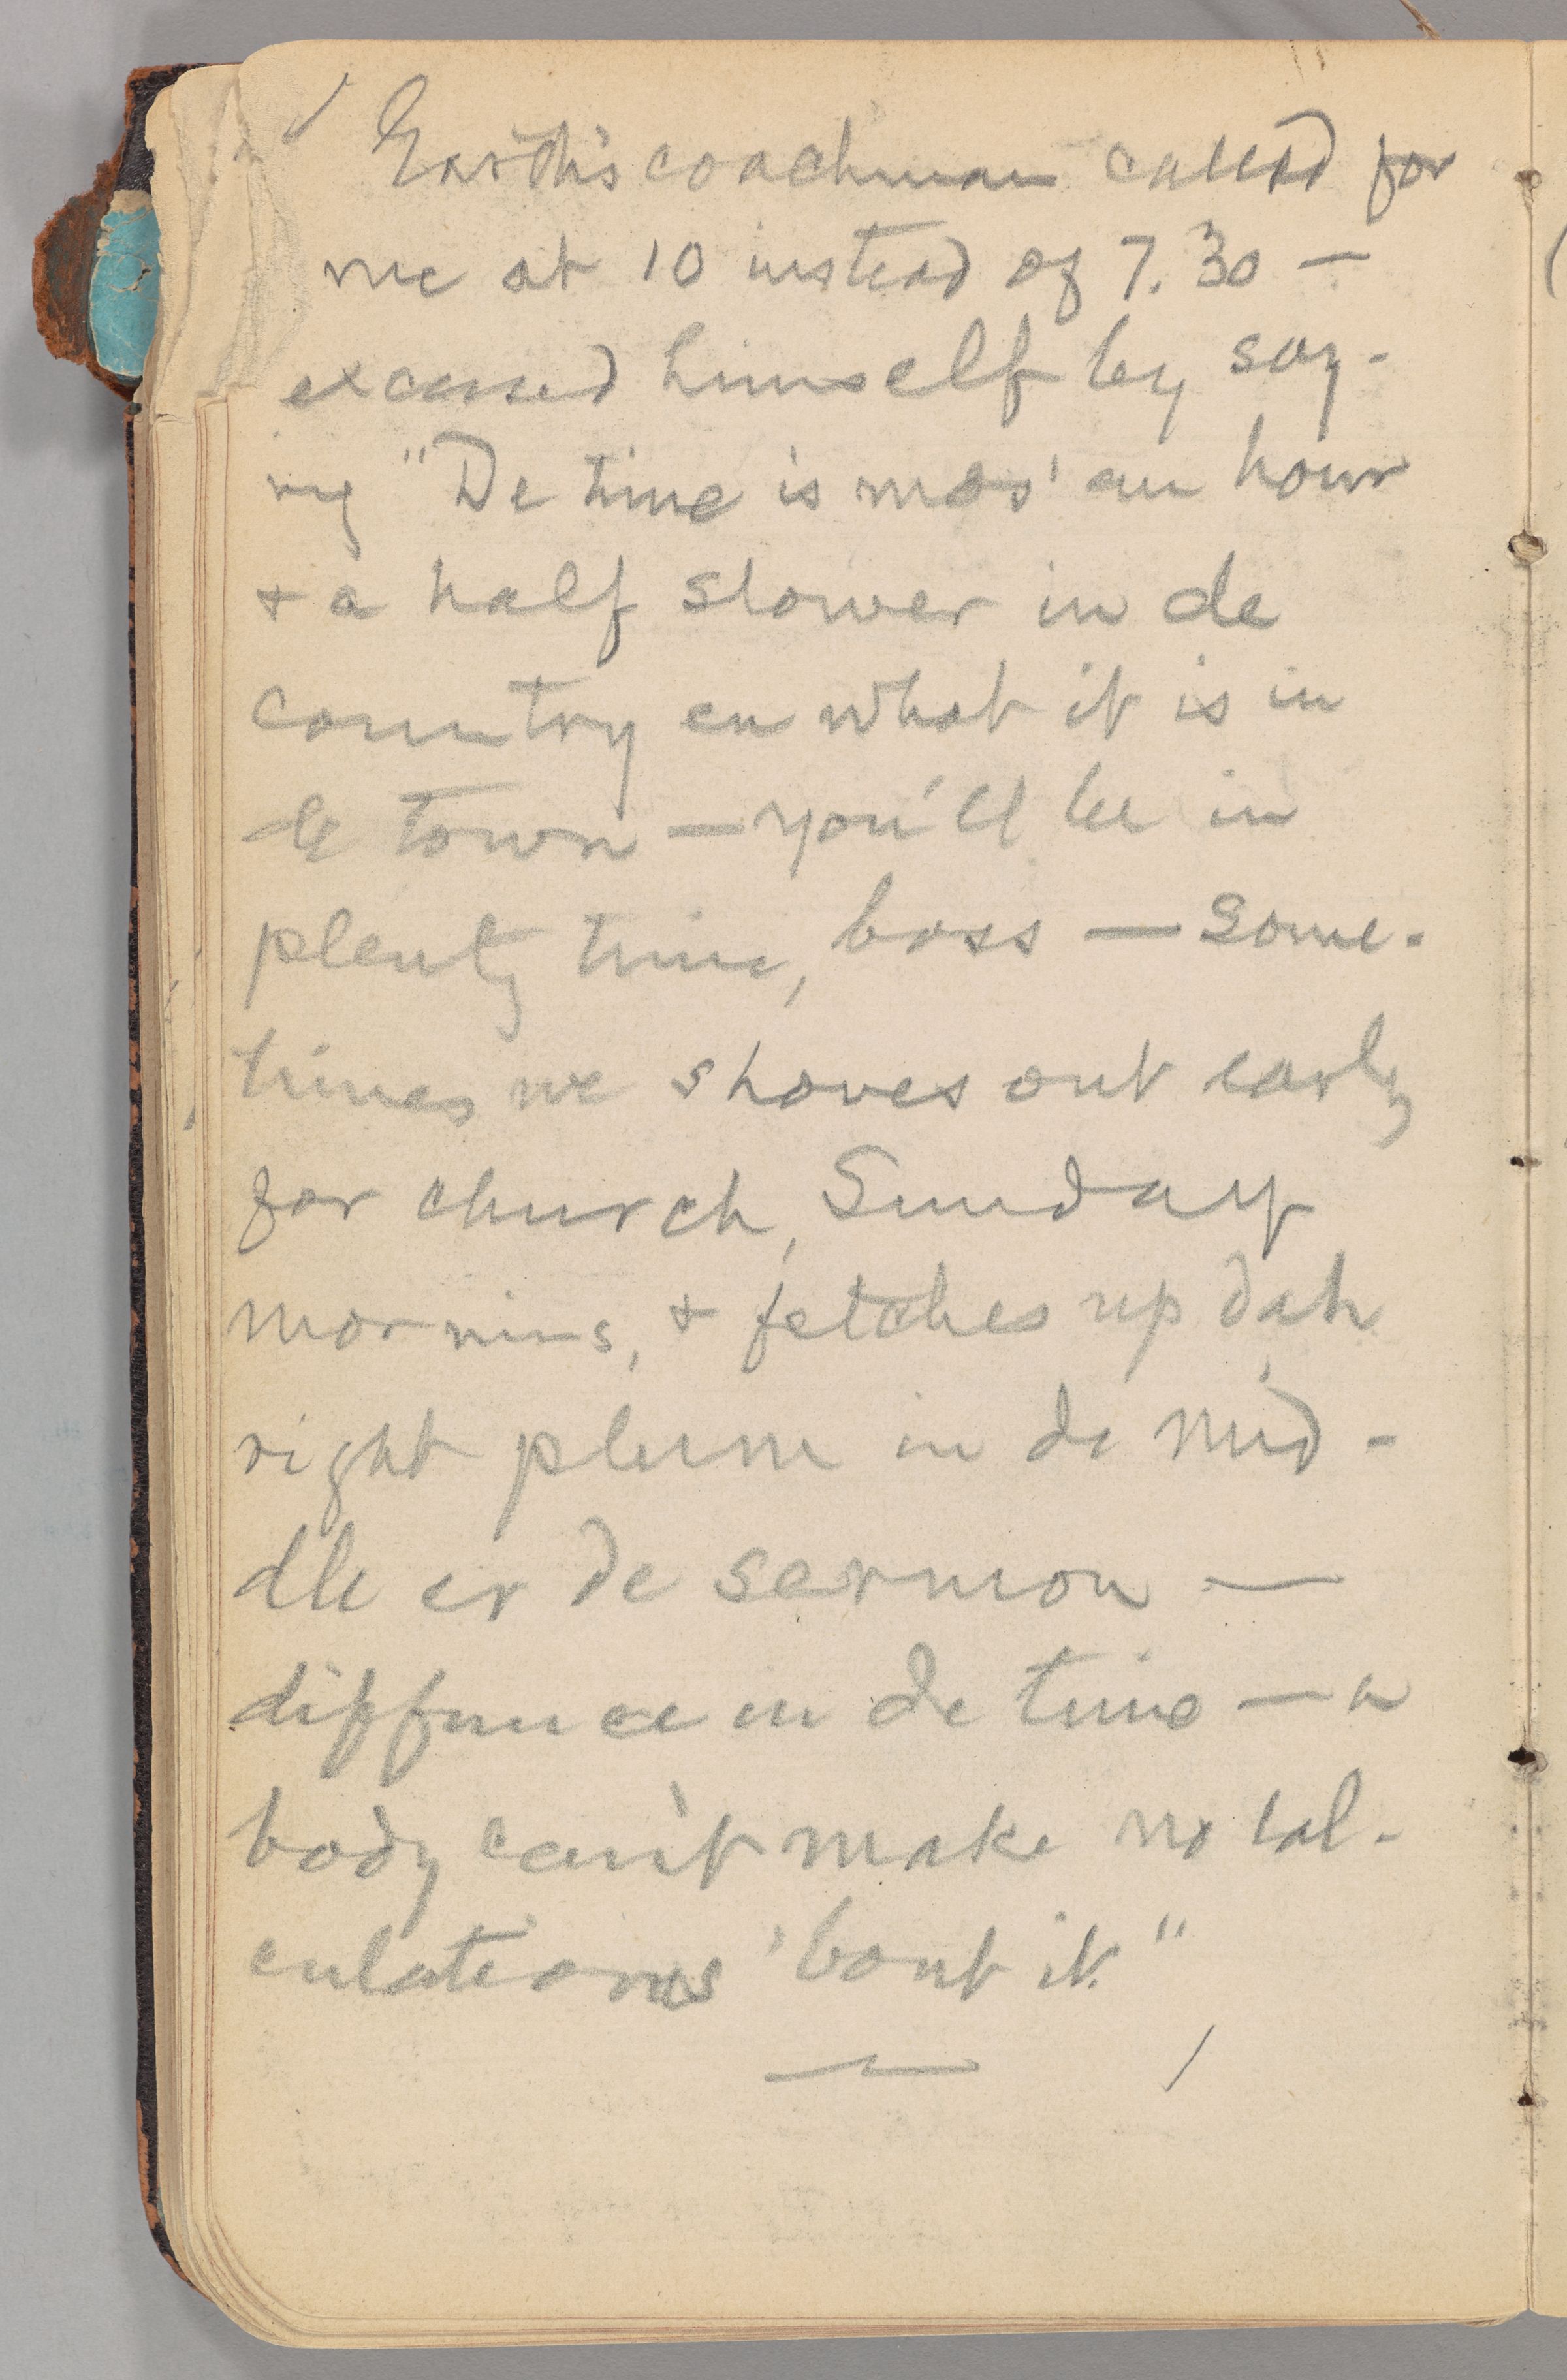 Garth's coachman called for
me at 10 instead of 7.30 —
excused himself by say-
ing "De time is mos' an hour
& a half slower in de
country en what it is in
de town — you'll be in
plenty time, boss — Some-
times we shoves out early
for church, Sunday
mornins, & fetches up dah
right plum in de mid-
dle er de sermon —
diffunce in de time — a
body can't make no cal-
culations 'bout it."